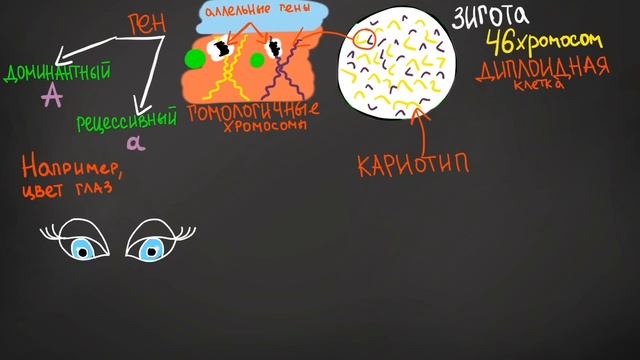 ГЕН
ДОМИНАНТНЫЙ
А
РЕЦЕССИВНЫЙ
а
Например,
цвет глаз
аллельные гены
ГОМОЛОГИЧНЫЕ
ХРОМОСОМЫ
ЗИГОТА
46 хромосом
ДИПЛОИДНАЯ
клетка
КАРИОТИП